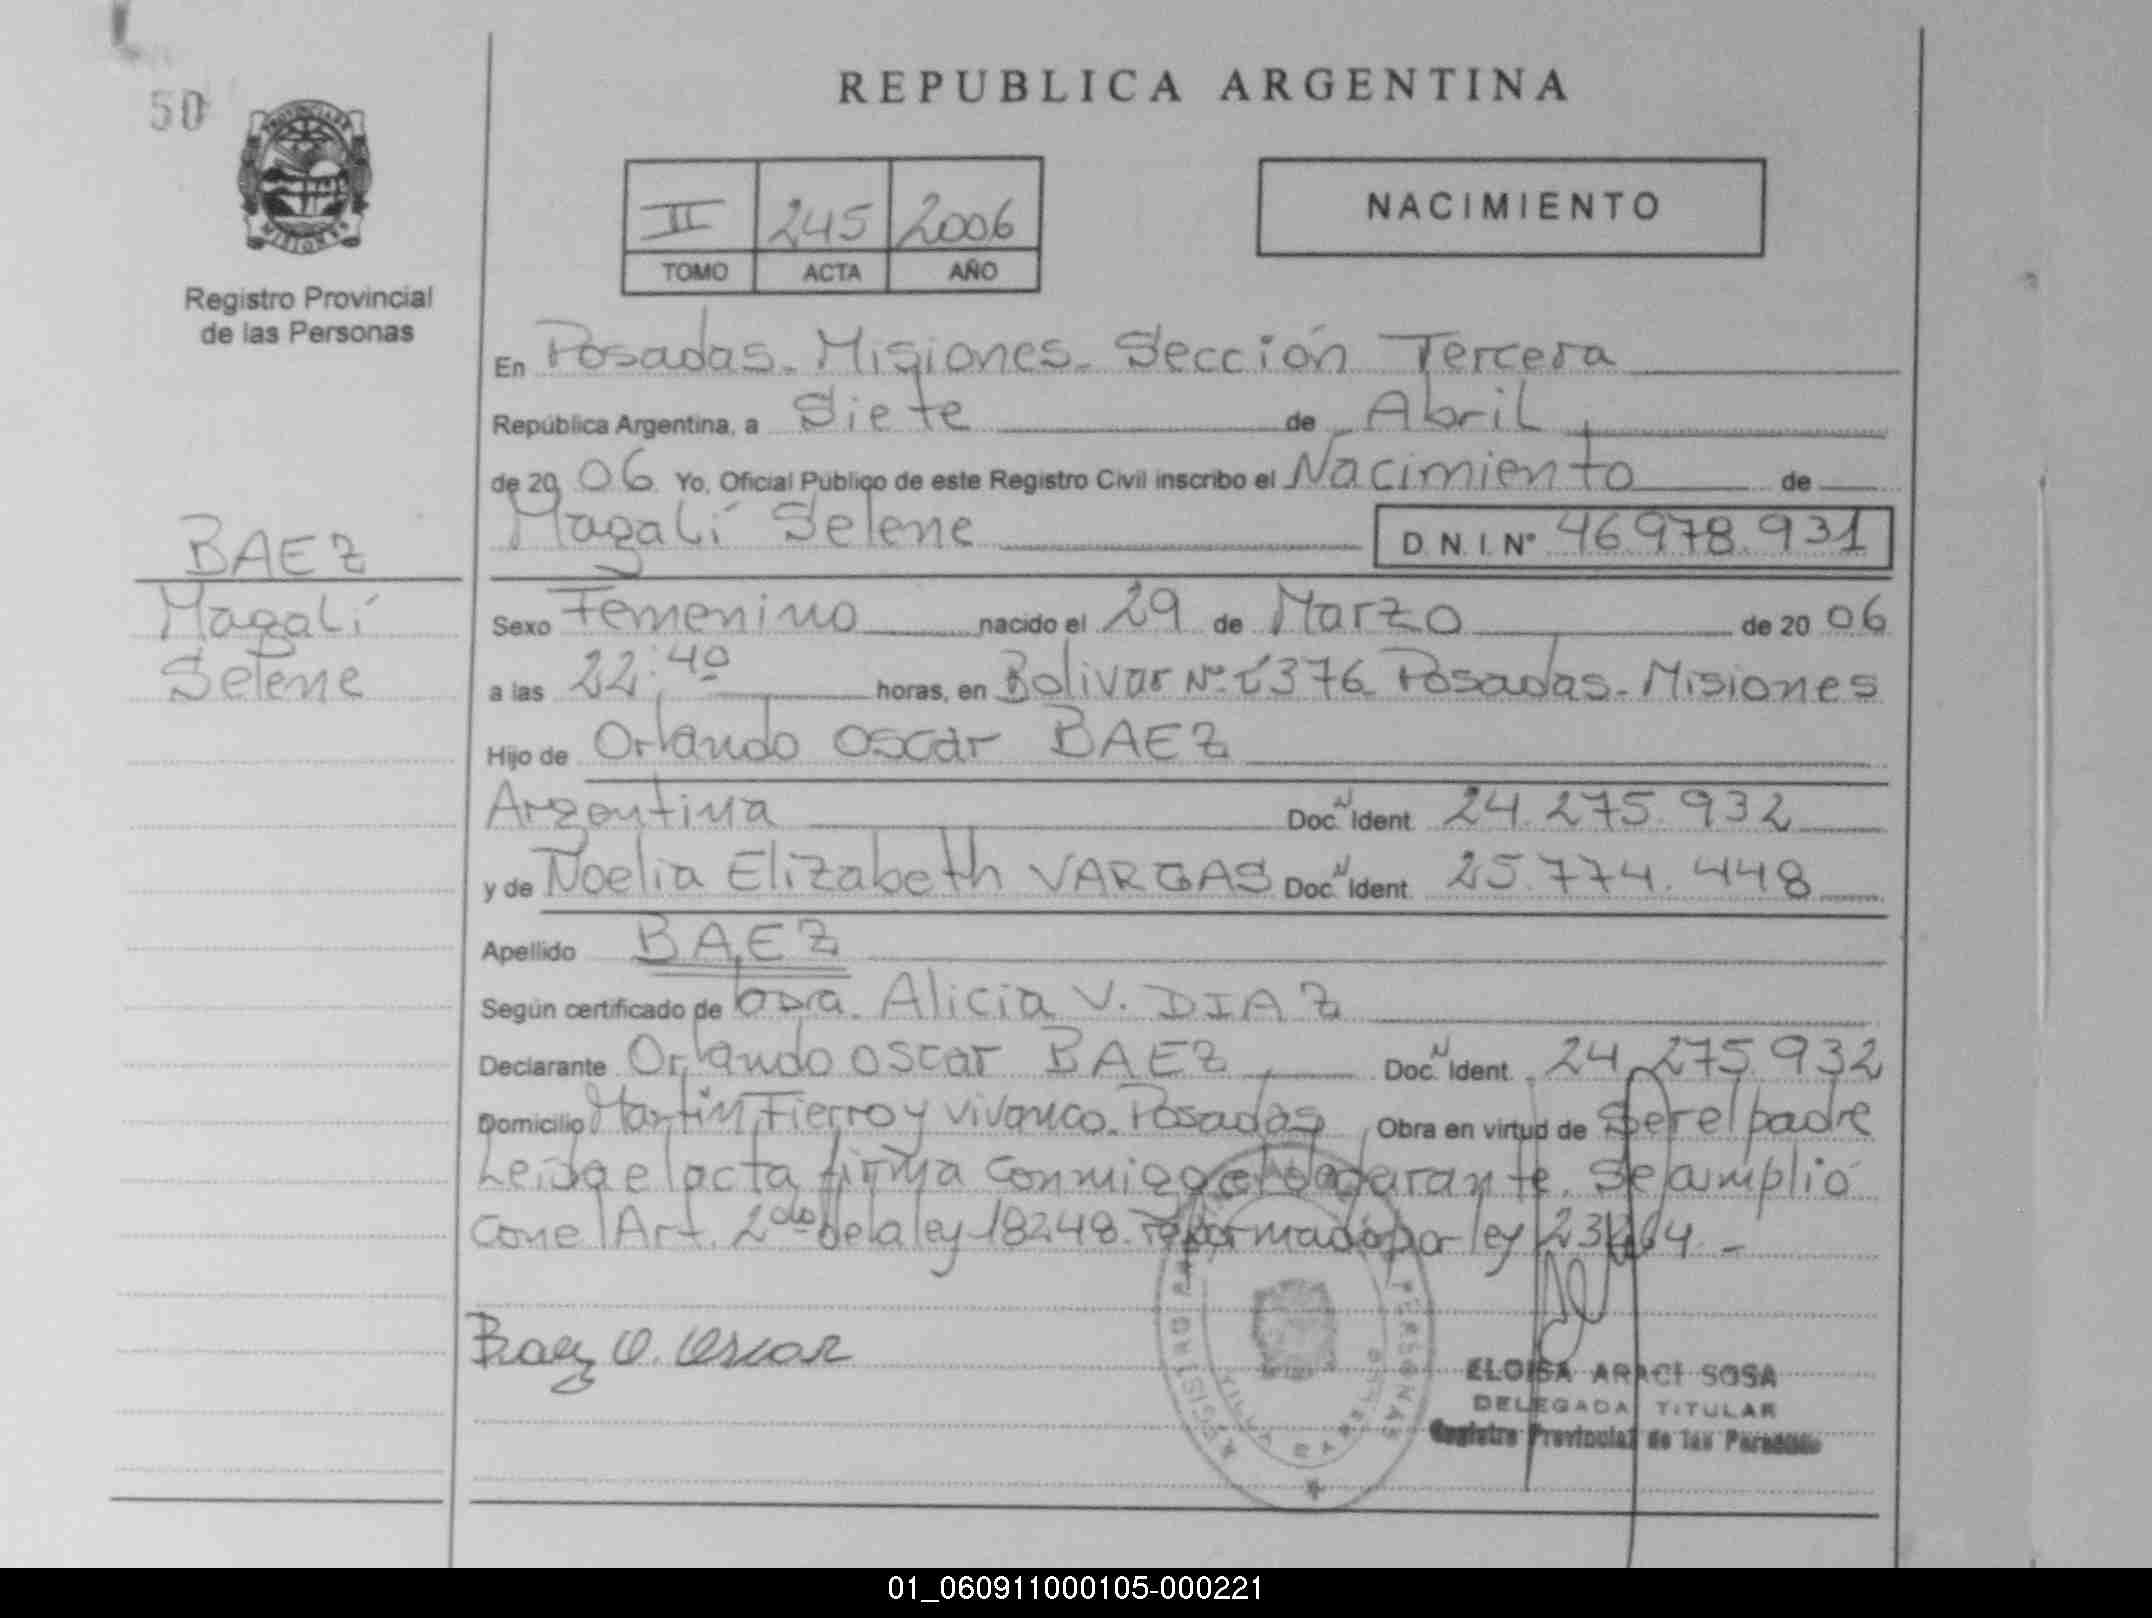 50
PROVINCIA DE
MISIONES
Registro Provincial
de las Personas
REPUBLICA ARGENTINA
II 245 2006
TOMO ACTA AÑO
NACIMIENTO
En Posadas - Misiones - Sección Tercera
República Argentina, a Siete de Abril
de 20 06 Yo, Oficial Público de este Registro Civil inscribo el Nacimiento de
Magalí Selene D.N.I. Nº 46.978.931
BAEZ
Magalí
Selene
Sexo Femenino nacido el 29 de Marzo de 20 06
a las 22:40 horas, en Bolivar Nº 1376 Posadas - Misiones
Hijo de Orlando Oscar BAEZ
Argentina Doc. N Ident. 24.275.932
y de Noelia Elizabeth VARGAS Doc. N Ident. 25.774.448
Apellido BAEZ
Según certificado de Obra. Alicia V. DIAZ
Declarante Orlando Oscar BAEZ Doc. N Ident. 24.275.932
Domicilio Martín Fierro y Vivanco - Posadas Obra en virtud de Ser el padre
Leída el acta firma conmigo el declarante. Se amplió
con el Art. 2do de la ley 18248 reformado por ley 23264 -
Baez O. Oscar
ELOISA ARACI SOSA
DELEGADA TITULAR
Registro Provincial de las Personas
01_060911000105-000221